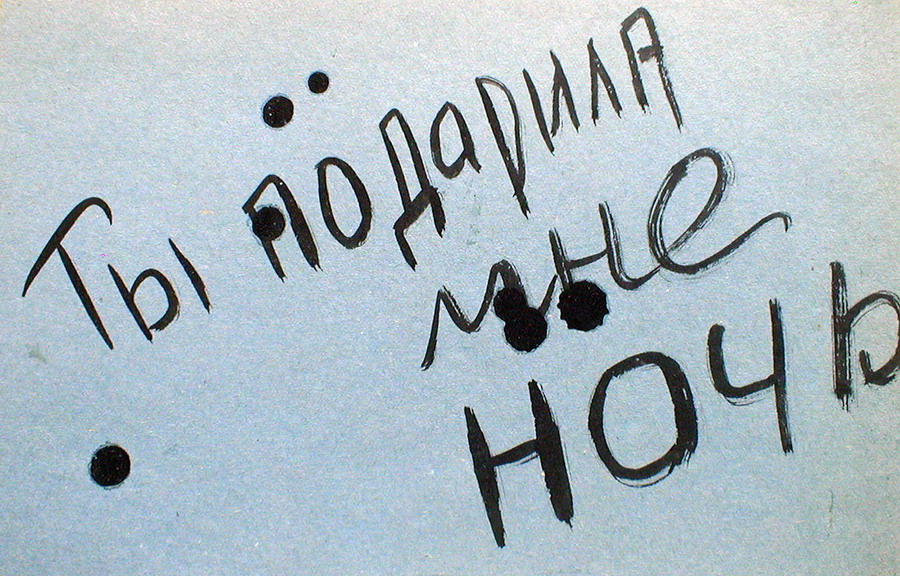 Ты подарила
мне
ночь